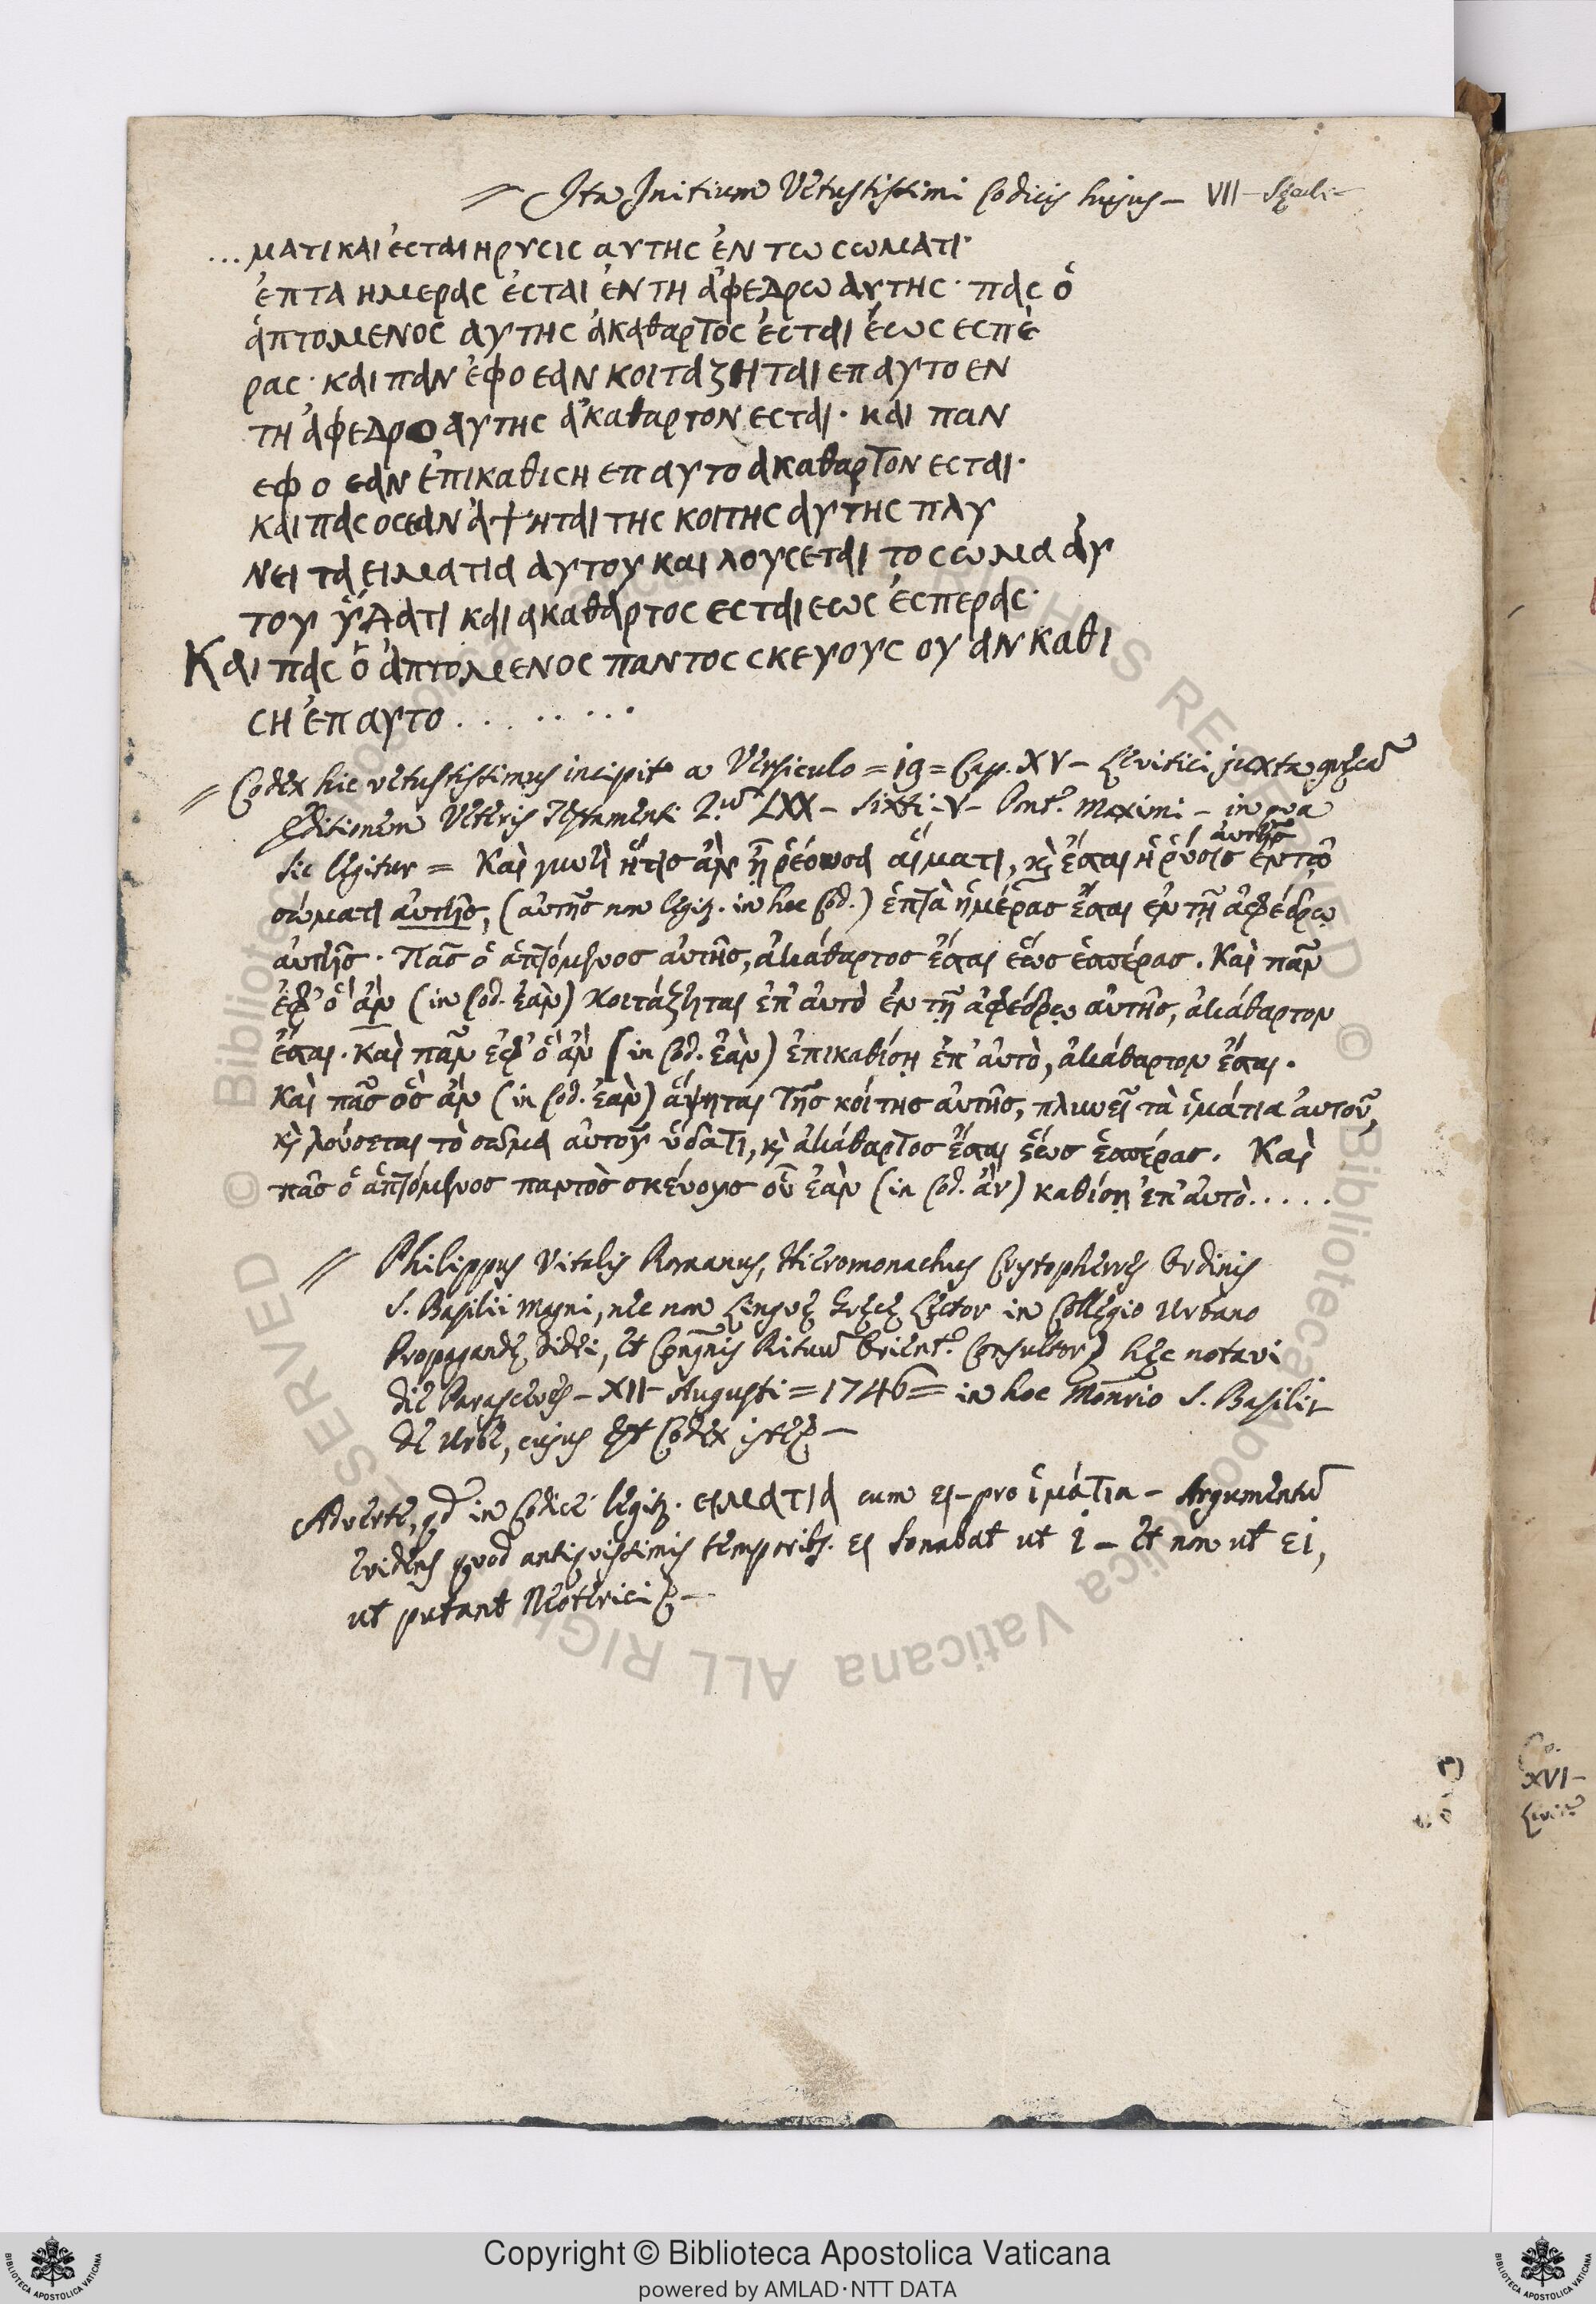 = Ita Initium Vetustissimi Codicis hujus – VII – Sęculi –
... ματι και ἐсται η ρυсιс αυτηс ἐν τω сωματι·
ἑπτα ημεραс ἐсται ἐν τη ἀφεδρω αυτηс · παс ὁ
ἁπτομενοс αυτηс ἀκαθαρτοс ἐсται ἑωс εсπὲ
ραс · και παν ἐφ ο εαν κοιταζηται επ αυτο εν
τη ἀφεδρο αυτηс ἀκαθαρτον εсται · και παν
εφ ο εαν ἐπικαθιсη επ αυτο ακαθαρτον εсται·
και παс οс εαν ἁψηται τηс κοιτηс αυτηс πλυ
νει τα ειματια αυτου και λουсεται το сωμα ἀυ
του ὕδατι και ακαθαρτοс εсται εωс ἑсπεραс·
Και παс ὁ ἁπτομενοс παντοс сκευουс ου αν καθι
сη ἐπ αυτο . . . . . . . .
= Codex hic vetustissimus incipit a Versiculo = 19 = Cap. XV – Levitici juxta gręcam̃
Editionem Veteris Testamenti LXX – Sixti – V – Pont. Maximi – in qua
sic legitur = Καὶ γυνὴ ἥτις ἂν ᾖ ῥέουσα αἵματι, κὶ ἔσται ἡ ῥύσις αὐτῆς ἐν τῷ
σώματι αὐτῆς, (αὐτῆς non legit. in hoc Cod.) ἑπτὰ ἡμέρας ἔσται ἐν τῇ ἀφέδρῳ
αὐτῆς · Πᾶς ὁ ἁπτόμενος αὐτῆς, ἀκάθαρτος ἔσται ἕως ἑσπέρας. Καὶ πᾶν
ἐφ' ὃ ἂν (in Cod. ἐὰν) κοιτάζηται ἐπ' αὐτὸ ἐν τῇ ἀφέδρῳ αὐτῆς, ἀκάθαρτον
ἔσται. Καὶ πᾶν ἐφ' ὃ ἂν (in Cod. ἐὰν) ἐπικαθίσῃ ἐπ' αὐτὸ, ἀκάθαρτον ἔσται.
Καὶ πᾶς ὃς ἂν (in Cod. ἐὰν) ἅψηται τῆς κοίτης αὐτῆς, πλυνεῖ τὰ ἱμάτια αὐτοῦ,
κὶ λούσεται τὸ σῶμα αὐτοῦ ὕδατι, κὶ ἀκάθαρτος ἔσται ἕως ἑσπέρας. Καὶ
πᾶς ὁ ἁπτόμενος παντὸς σκεύους οὗ ἐὰν (in Cod. ἂν) καθίσῃ ἐπ' αὐτὸ.....
= Philippus Vitalis Romanus, Hieromonachus Cryptoferres Ordinis
S. Basilii Magni, nec non Linguę Gręcę Lector in Collegio Urbano
Propagandę Fidei, et Congñis Rituum Orient. Consultor, hęc notavi
die Parasceves – XII – Augusti = 1746 = in hoc Monrio S. Basilii
de Urbe, cujus est Codex iste –
Adverte, qd in Codice legit. ειματια cum ει – pro ἱμάτια – Argumentum̃
evidens quod antiquissimis temporibs. ει sonabat ut i – et non ut ει,
ut putant Neoterici –
Co.
XVI –
Levit.
Copyright © Biblioteca Apostolica Vaticana
powered by AMLAD·NTT DATA
© Biblioteca Apostolica Vaticana ALL RIGHTS RESERVED
BIBLIOTECA APOSTOLICA VATICANA
BIBLIOTECA APOSTOLICA VATICANA